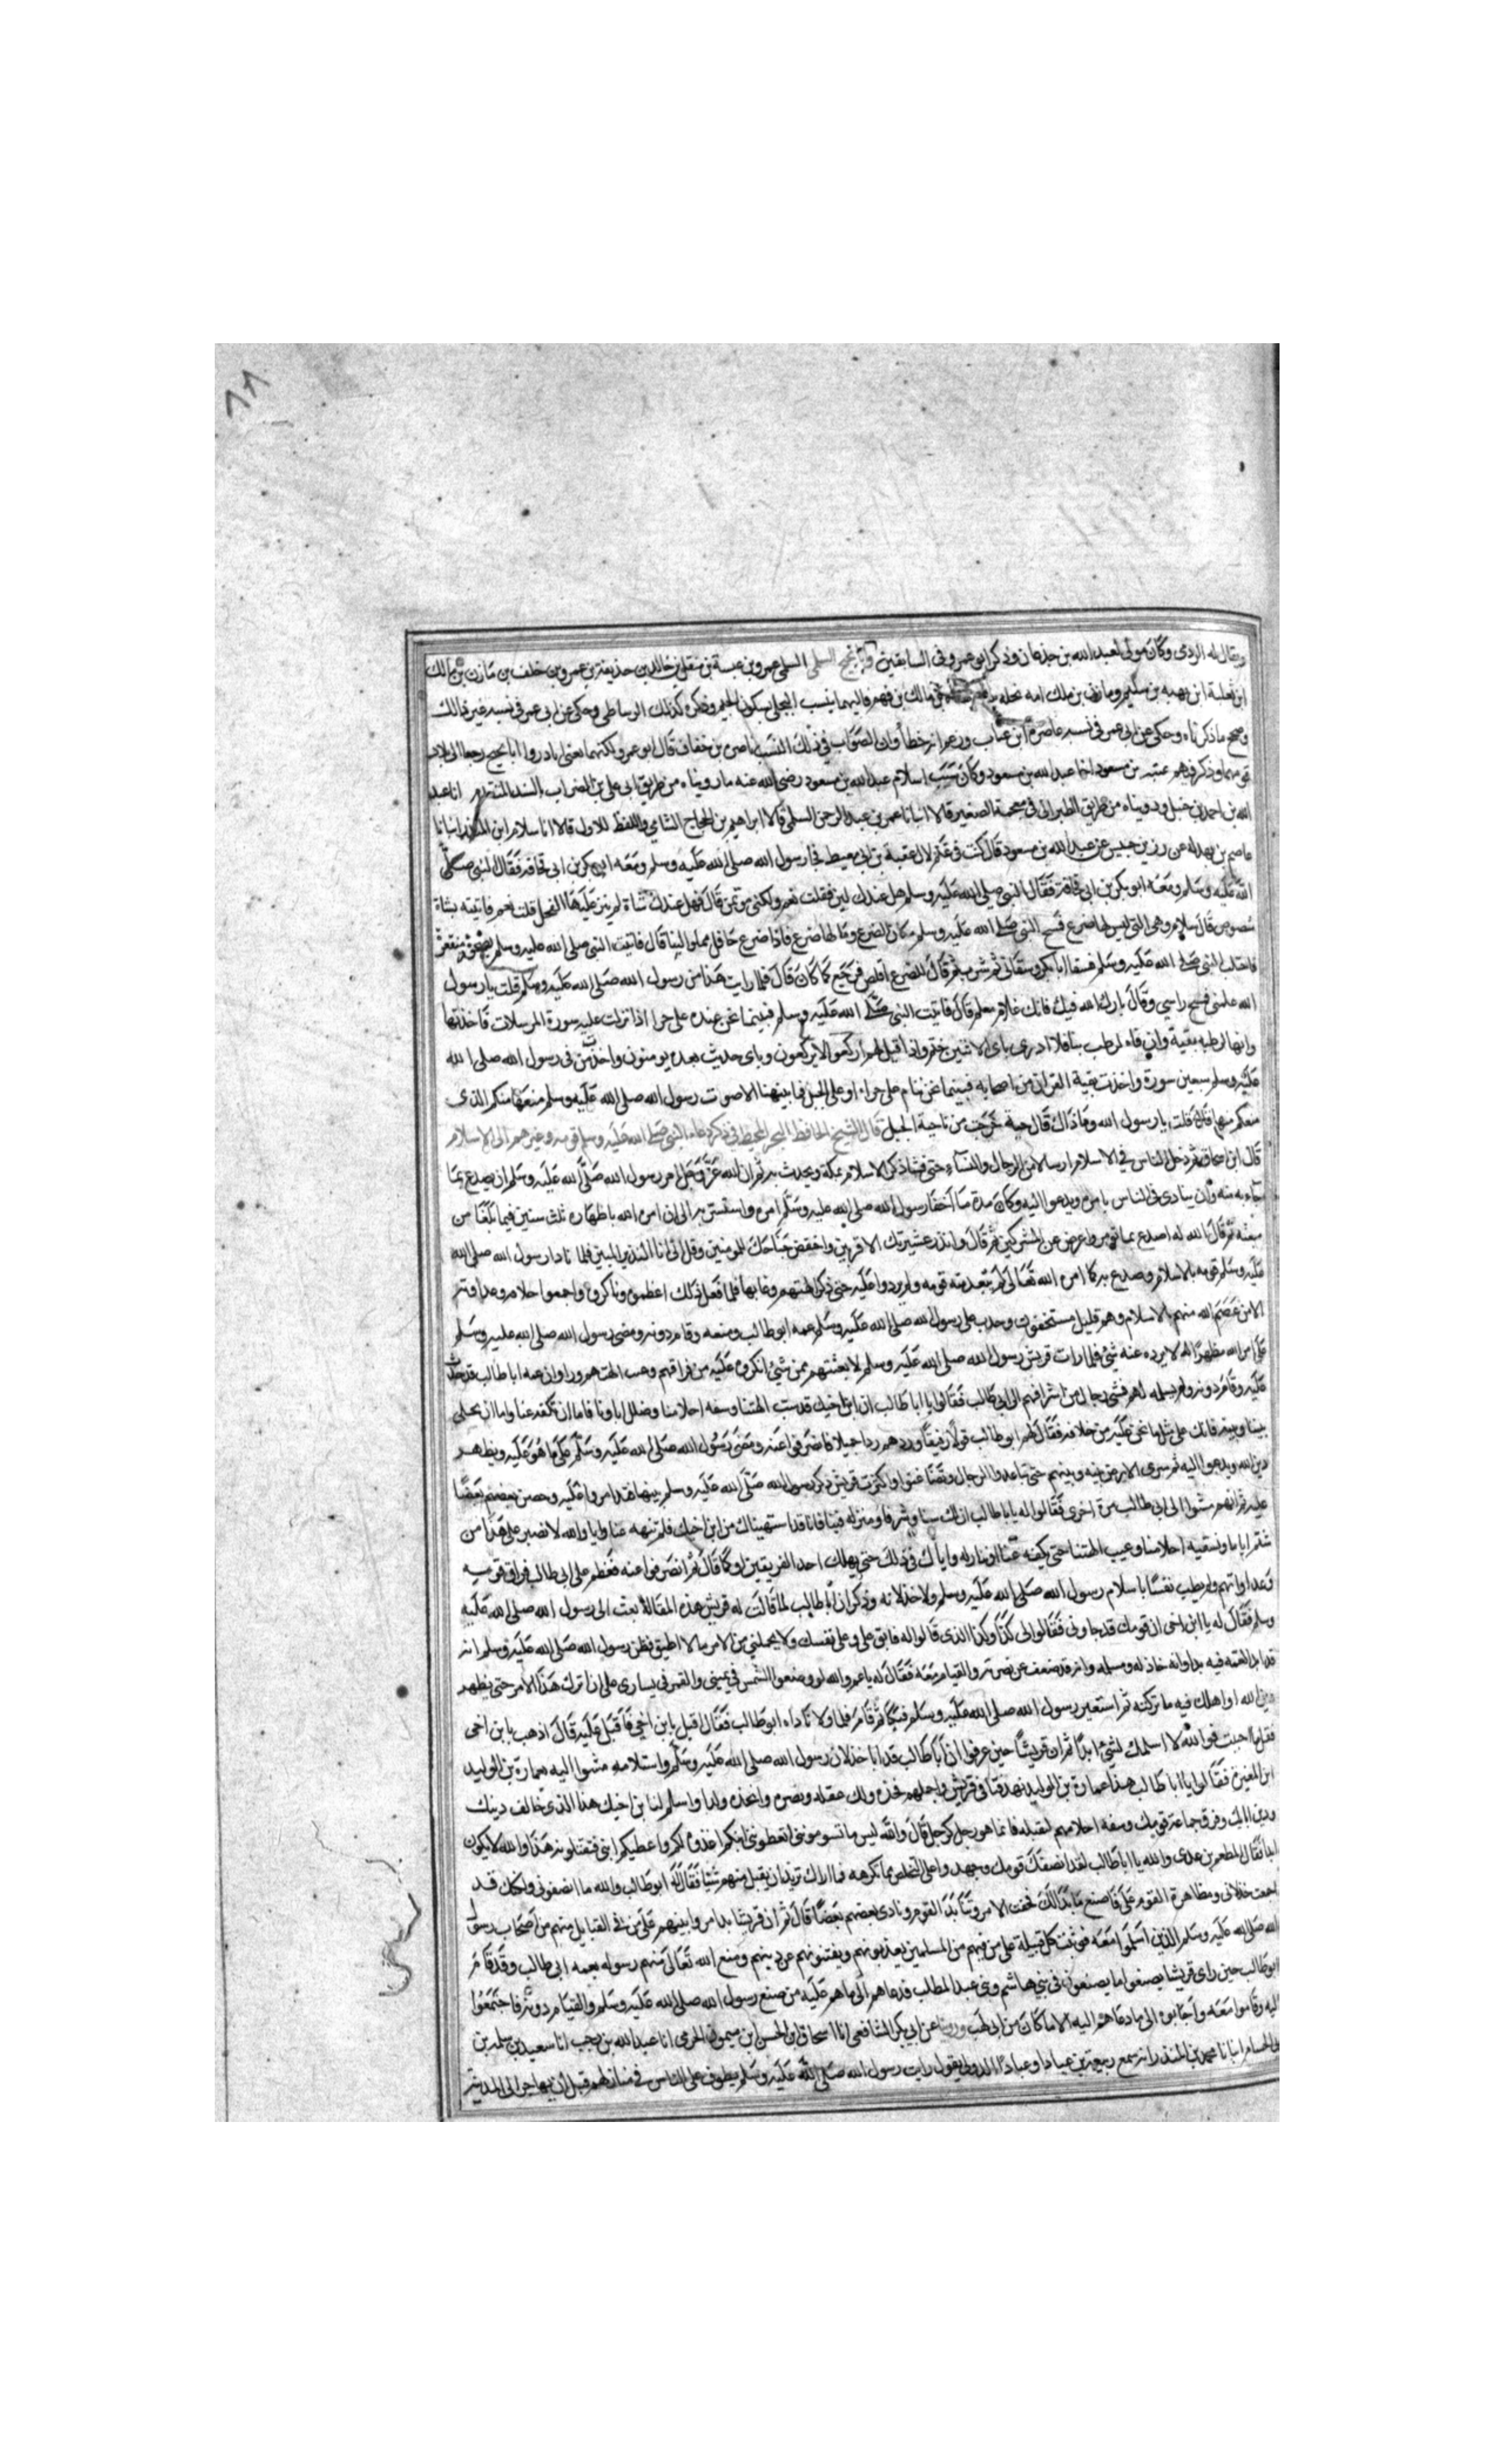 ٨٨
ويقال له الرومى وكان مولى لعبد الله بن جدعان وذكر ابو عمر وفى السابقين وابا نجيح السلمى السلمى عمرو بن عبسة بن منقذ بن خالد بن حذيفة بن عمرو بن خلف بن مازن بن مالك
ابن ثعلبة ابن بهثه بن سليم ومازن بن ملك امه بجله بن مالك بن فهم واليهما ينسب البجلى بسكون الجيم وذكره كذلك الرشاطى وحكى عن ابى عمر فى نسبه غير ذالك
وصحح ما ذكرناه وحكى عن ابى عمر فى نسبه عاضرة ابن عتاب وزعم انه خطأ وان الصواب فى ذلك النسب ناضره بن خفاف قال ابو عمر ولكنهما يعنى اباذر وابا نجيح رجعا الى بلاد
قومهما وذكر فيهم عتبه بن مسعود اخا عبد الله بن مسعود وكان سبب اسلام عبد الله بن مسعود رضى الله عنه ما رويناه من طريق ابى على بن الصراف بالسند المتقدم انا عبد
الله بن احمد بن حنبل ورويناه من طريق الطبرانى فى معجمه الصغير قالا انبانا عمر بن عبد الرحمن السلمى قالا ابراهيم بن الحجاج الشامى واللفظ للاول قالا انا سلام ابن المنذر انبانا
عاصم بن بهدله عن زر بن حبيش عن عبد الله بن مسعود قال كنت فى غنم لال عقبة بن ابى معيط فجا رسول الله صلى الله عليه وسلم ومعه ابو بكر بن ابى قحافه فقال النبى صلى
الله عليه وسلم ومعه ابو بكر بن ابى قحافة فقال النبى صلى الله عليه وسلم هل عندك لبن فقلت نعم ولكنى موتمن قال فهل عندك شاة لم ينز عليها الفحل قلت نعم فاتيته بشاة
شصوص قال سلام وهى التى ليس لها ضرع فمسح النبى صلى الله عليه وسلم مكان الضرع وما لها ضرع فاذا ضرع حافل مملو لبنا قال فاتيت النبى صلى الله عليه وسلم بصخرة منقعرة
فاحتلب النبى صلى الله عليه وسلم فسقا ابا بكر وسقانى ثم شرب ثم قال للضرع اقلص فرجع كما كان قال فلما رايت هذا من رسول الله صلى الله عليه وسلم قلت يا رسول
الله علمنى فمسح راسى وقال بارك الله فيك فانك غلام معلم قال فاتيت النبى صلى الله عليه وسلم فبينما نحن عنده على حرا اذ نزلت عليه سورة المرسلات فاخذتها
وانها لرطبه بفيه وان فاه لرطب بها فلا ادرى باى الاثنين ختم واذا قيل لهم اركعوا لا يركعون وباى حديث بعده يومنون واخذت من فى رسول الله صلى الله
عليه وسلم سبعين سورة واخذت بقية القران من اصحابه فبينما نحن نيام على حراء او على الجبل فما نبهنا الا صوت رسول الله صلى الله عليه وسلم منعها منكم الذى
منعكم منها قال قلت يا رسول الله وما ذاك قال حية خرجت من ناحية الجبل قال الشيخ الحافظ البحر المحيط فى ذكر دعاء النبى صلى الله عليه وسلم قومه وغيرهم الى الاسلام
قال ابن اسحاق ثم دخل الناس فى الاسلام ارسالا من الرجال والنساء حتى فشا ذكر الاسلام بمكة وتحدث به ثم ان الله عز وجل امر رسول الله صلى الله عليه وسلم ان يصدع بما
جاء به منه وان ينادى فى الناس بامره ويدعوا اليه وكان مدة ما اخفا رسول الله صلى الله عليه وسلم امره واستسر به الى ان امره الله باظهاره ثلث سنين فيما بلغنا من
مبعثه ثم قال الله له اصدع بما تومر واعرض عن المشركين ثم قال وانذر عشيرتك الاقربين واخفض جناحك للمومنين وقل انى انا النذير المبين فلما نادا رسول الله صلى الله
عليه وسلم قومه بالاسلام وصدع به كما امره الله تعالى لم يتبعد منه قومه ولم يردوا عليه حتى ذكر الهتهم وعابها فلما فعل ذلك اعظموه وناكروه واجمعوا خلافه وعداوته
الا من عصم الله منهم بالاسلام وهم قليل مستخفون وحدب على رسول الله صلى الله عليه وسلم عمه ابو طالب ومنعه وقام دونه ومضى رسول الله صلى الله عليه وسلم
على امر الله مظهرا له لا يرده عنه شئ فلما رات قريش رسول الله صلى الله عليه وسلم لا يعتبهم من شئ انكروه عليه من فراقهم وعيب الهتهم وراوا ان عمه ابا طالب قد حدب
عليه وقام دونه ولم يسلمه لهم فمشى رجال من اشرافهم الى ابى طالب فقالوا يا ابا طالب ان ابن اخيك قد سب الهتنا وسفه احلامنا وضلل اباونا فاما ان تكفه عنا واما ان تخلى
بيننا وبينه فانك على مثل ما نحن عليه من خلافه فقال لهم ابو طالب قولا رفيقا وردهم ردا جميلا فانصرفوا عنه ومضى رسول الله صلى الله عليه وسلم على ما هو عليه ويظهر
دين الله ويدعوا اليه ثم سرى الامر بينه وبينهم حتى تباعد الرجال وتضاغنوا واكثرت قريش ذكر رسول الله صلى الله عليه وسلم بينها فتذامروا عليه وحض بعضهم بعضا
عليه ثم انهم مشوا الى ابى طالب مرة اخرى فقالوا له يا با طالب ان لك سنا وشرفا ومنزله فينا فانا قد استنهيناك من ابن اخيك فلم تنهه عنا وانا والله لا نصبر على هذا من
شتم ابانا وتسفيه احلامنا وعيب الهتنا حتى تكفه عنا او ننازله واياك فى ذلك حتى يهلك احد الفريقين او كما قال ثم انصرفوا عنه فعظم على ابى طالب فراق قومه
وعداواتهم ولم يطب نفسا باسلام رسول الله صلى الله عليه وسلم ولا خذلانه وذكر ان ابا طالب لما قالت له قريش هذه المقالة بعث الى رسول الله صلى الله عليه
وسلم فقال له يا ابن اخى ان قومك قد جاونى فقالوا لى كذا وكذا الذى قالوا له فابق على وعلى نفسك ولا تحملنى من الامر ما لا اطيق فظن رسول الله صلى الله عليه وسلم انه
قد بدا لعمه فيه بدا وانه خاذله ومسلمه وانه قد ضعف عن نصرته والقيام معه فقال له يا عم والله لو وضعوا الشمس فى يمينى والقمر فى يسارى على ان اترك هذا الامر حتى يظهر
دين الله او اهلك فيه ما تركته ثم استعبر رسول الله صلى الله عليه وسلم فبكا ثم قام فلما ولا ناداه ابو طالب فقال اقبل يا بن اخى فاقبل عليه قال اذهب يا بن اخى
فقل ما احببت فوالله لا اسلمك لشئ ابدا ثم ان قريشا حين عرفوا ان ابا طالب قد ابا خذلان رسول الله صلى الله عليه وسلم واسلامه مشوا اليه بعمارة بن الوليد
ابن المغيرة فقالوا يا ابا طالب هذا عمارة بن الوليد نهد فتا فى قريش واجمله فخذه ولك عقله ونصره واتخذه ولدا واسلم لنا بن اخيك هذا الذى خالف دينك
ودين ابائك وفرق جماعة قومك وسفه احلامهم لنقتله فانما هو رجل كرجل قال والله ليس ما تسوموننى اتعطونى ابنكم اغذوه لكم واعطيكم ابنى فتقتلونه هذا والله لا يكون
ابدا فقال المطعم بن عدى والله يا ابا طالب لقد انصفك قومك وجهدوا على التخلص مما تكرهه فما اراك تريد ان تقبل منهم شئيا فقال له ابو طالب والله ما انصفونى ولكنك قد
اجمعت خذلانى ومظاهرة القوم على فاصنع ما بدا لك فحقب الامر وتنابذ القوم ونادى بعضهم بعضا قال ثم ان قريشا تذامروا بينهم على من فى القبايل منهم من اصحاب رسول
الله صلى الله عليه وسلم الذين اسلموا معه فوثبت كل قبيلة على من فيهم من المسلمين يعذبونهم ويفتنونهم عن دينهم ومنع الله تعالى منهم رسوله بعمه ابى طالب وقد قام
ابو طالب حين راى قريشا يصنعوا ما يصنعون فى بنى هاشم وبنى عبد المطلب فدعاهم الى ما هو عليه من منع رسول الله صلى الله عليه وسلم والقيام دونه فاجتمعوا
اليه وقاموا معه واجابوه الى ما دعاهم اليه الا ما كان من ابى لهب وروينا عن ابى بكر الشافعى انا اسحاق ابن الحسن ابن ميمون الحربى انا عبد الله بن رجب انا سعيد بن سلمه بن
ابى الحسام انبانا محمد بن المنذر انه سمع ربيعة بن عباد او عباد الدولى يقول رايت رسول الله صلى الله عليه وسلم يطوف على الناس فى منازلهم قبل ان يهاجر الى المدينة